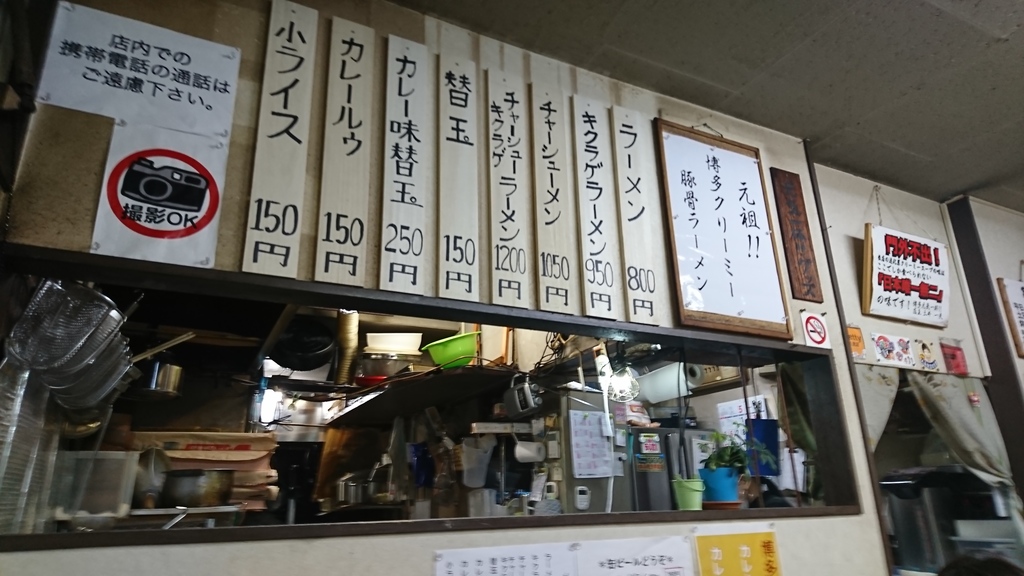 店内での
携帯電話の通話は
ご遠慮下さい。
撮影OK
小ライス 150円
カレールゥ 150円
カレー味替玉。 250円
替玉。 150円
チャーシューラーメン
キクラゲ 1200円
チャーシューメン 1050円
キクラゲラーメン 950円
ラーメン 800円
元祖!!
博多クリーミー
豚骨ラーメン
門外不出!
の味です!
※缶ビールどうぞ※